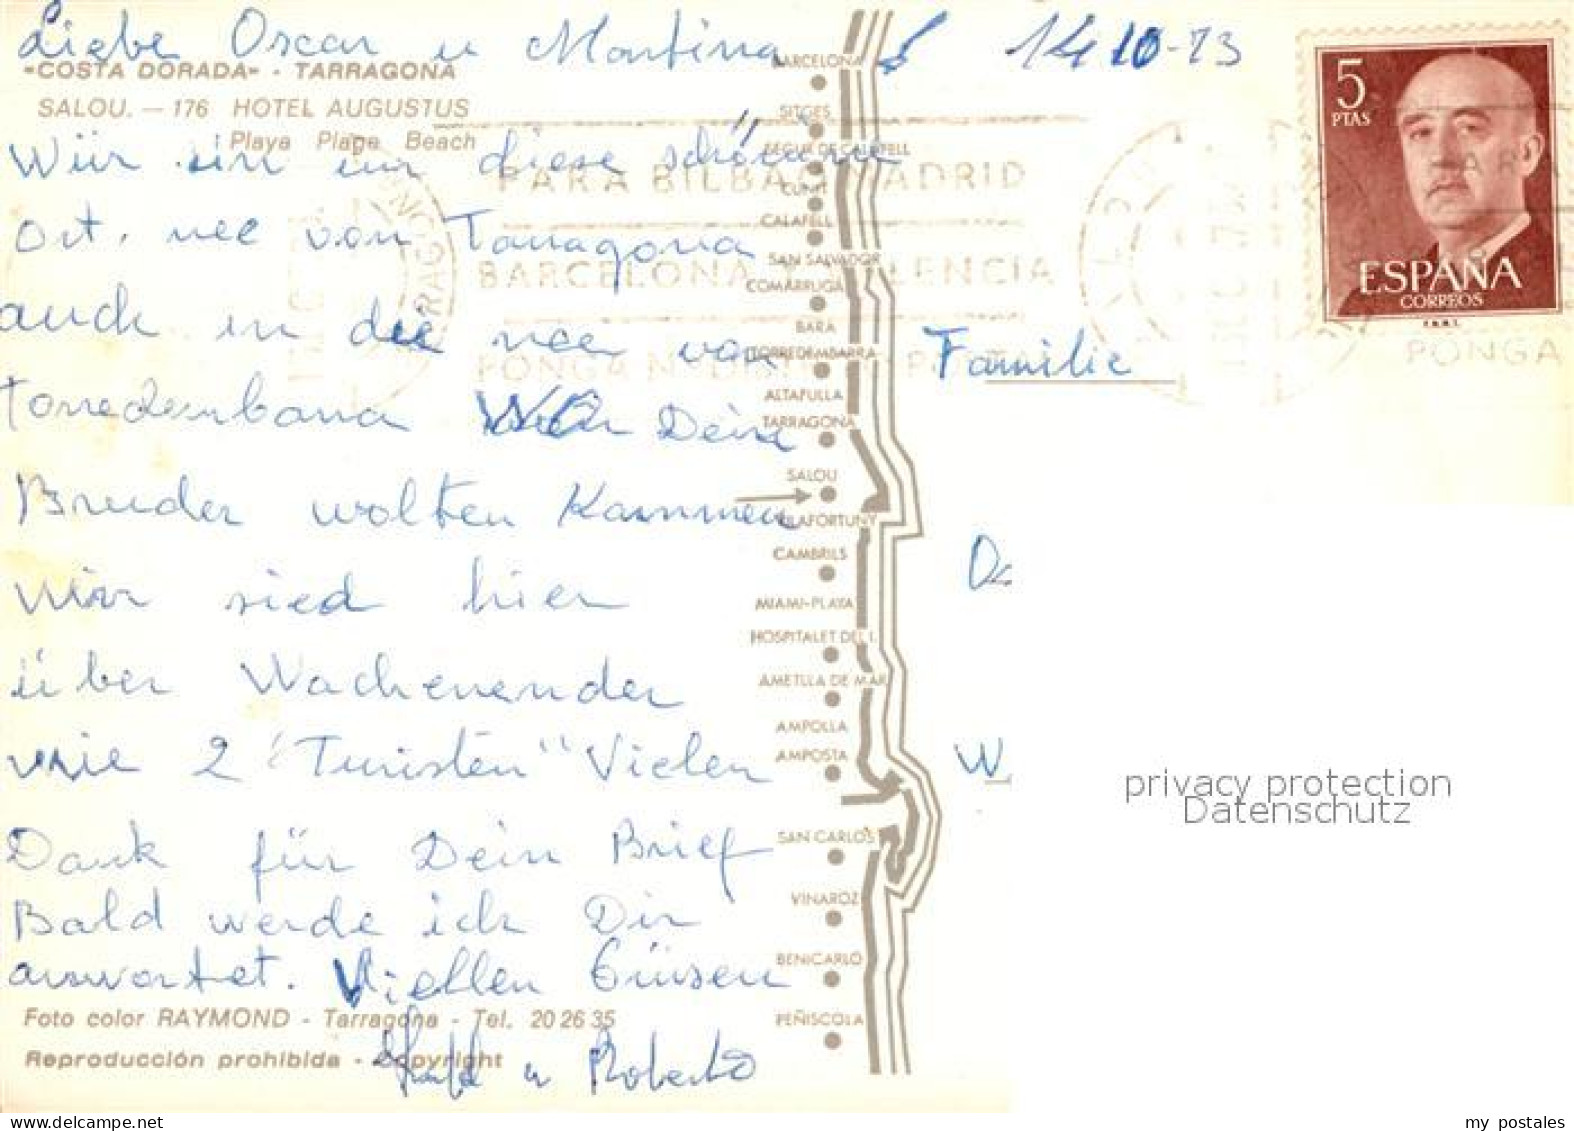 Liebe Oscar u Martina
14 10-73
"COSTA DORADA" - TARRAGONA
SALOU. — 176 HOTEL AUGUSTUS
Playa Plage Beach
Wiir in diese schöcum
Ort, nee von Tarragona
auch in die nee von
Torredembarra Deine
Bruder wolten Kammen
wir sied hier
über Wachenender
wie 2 "Turisten" Vielen
Dank für Dein Brief
Bald werde ich Dir
answortet. Viellen Grüsen
u Roberto
Foto color RAYMOND - Tarragona - Tel. 20 26 35
Reproducción prohibida - Copyright
BARCELONA
SITGES
SEGUR DE CALAFELL
CUNIT
CALAFELL
SAN SALVADOR
COMARRUGA
BARA
TORREDEMBARRA
ALTAFULLA
TARRAGONA
SALOU
VILAFORTUNY
CAMBRILS
MIAMI-PLAYA
HOSPITALET DEL I.
AMETLLA DE MAR
AMPOLLA
AMPOSTA
SAN CARLOS
VINAROZ
BENICARLO
PEÑISCOLA
PARA BILBAO MADRID
BARCELONA Y VALENCIA
5
PTAS
ESPAÑA
CORREOS
F.N.M.T.
PONGA
Familie
W
privacy protection
Datenschutz
delcampe.net
my postales